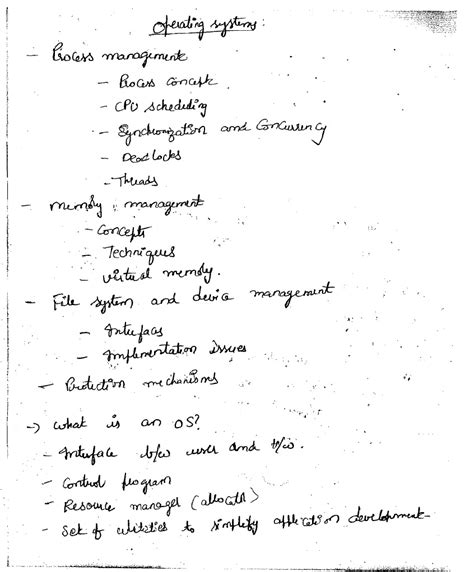 Operating systems:
- Process management
- Process concept
- CPU scheduling
- Synchronization and Concurrency
- Deadlocks
- Threads
- Memory management
- Concepts
- Techniques
- Virtual memory.
- File system and device management
- Interfaces
- Implementation issues
- Protection mechanisms
→ What is an OS?
- Interface b/w user and h/w.
- Control program
- Resource manager (allocator)
- Set of utilities to simplify application development